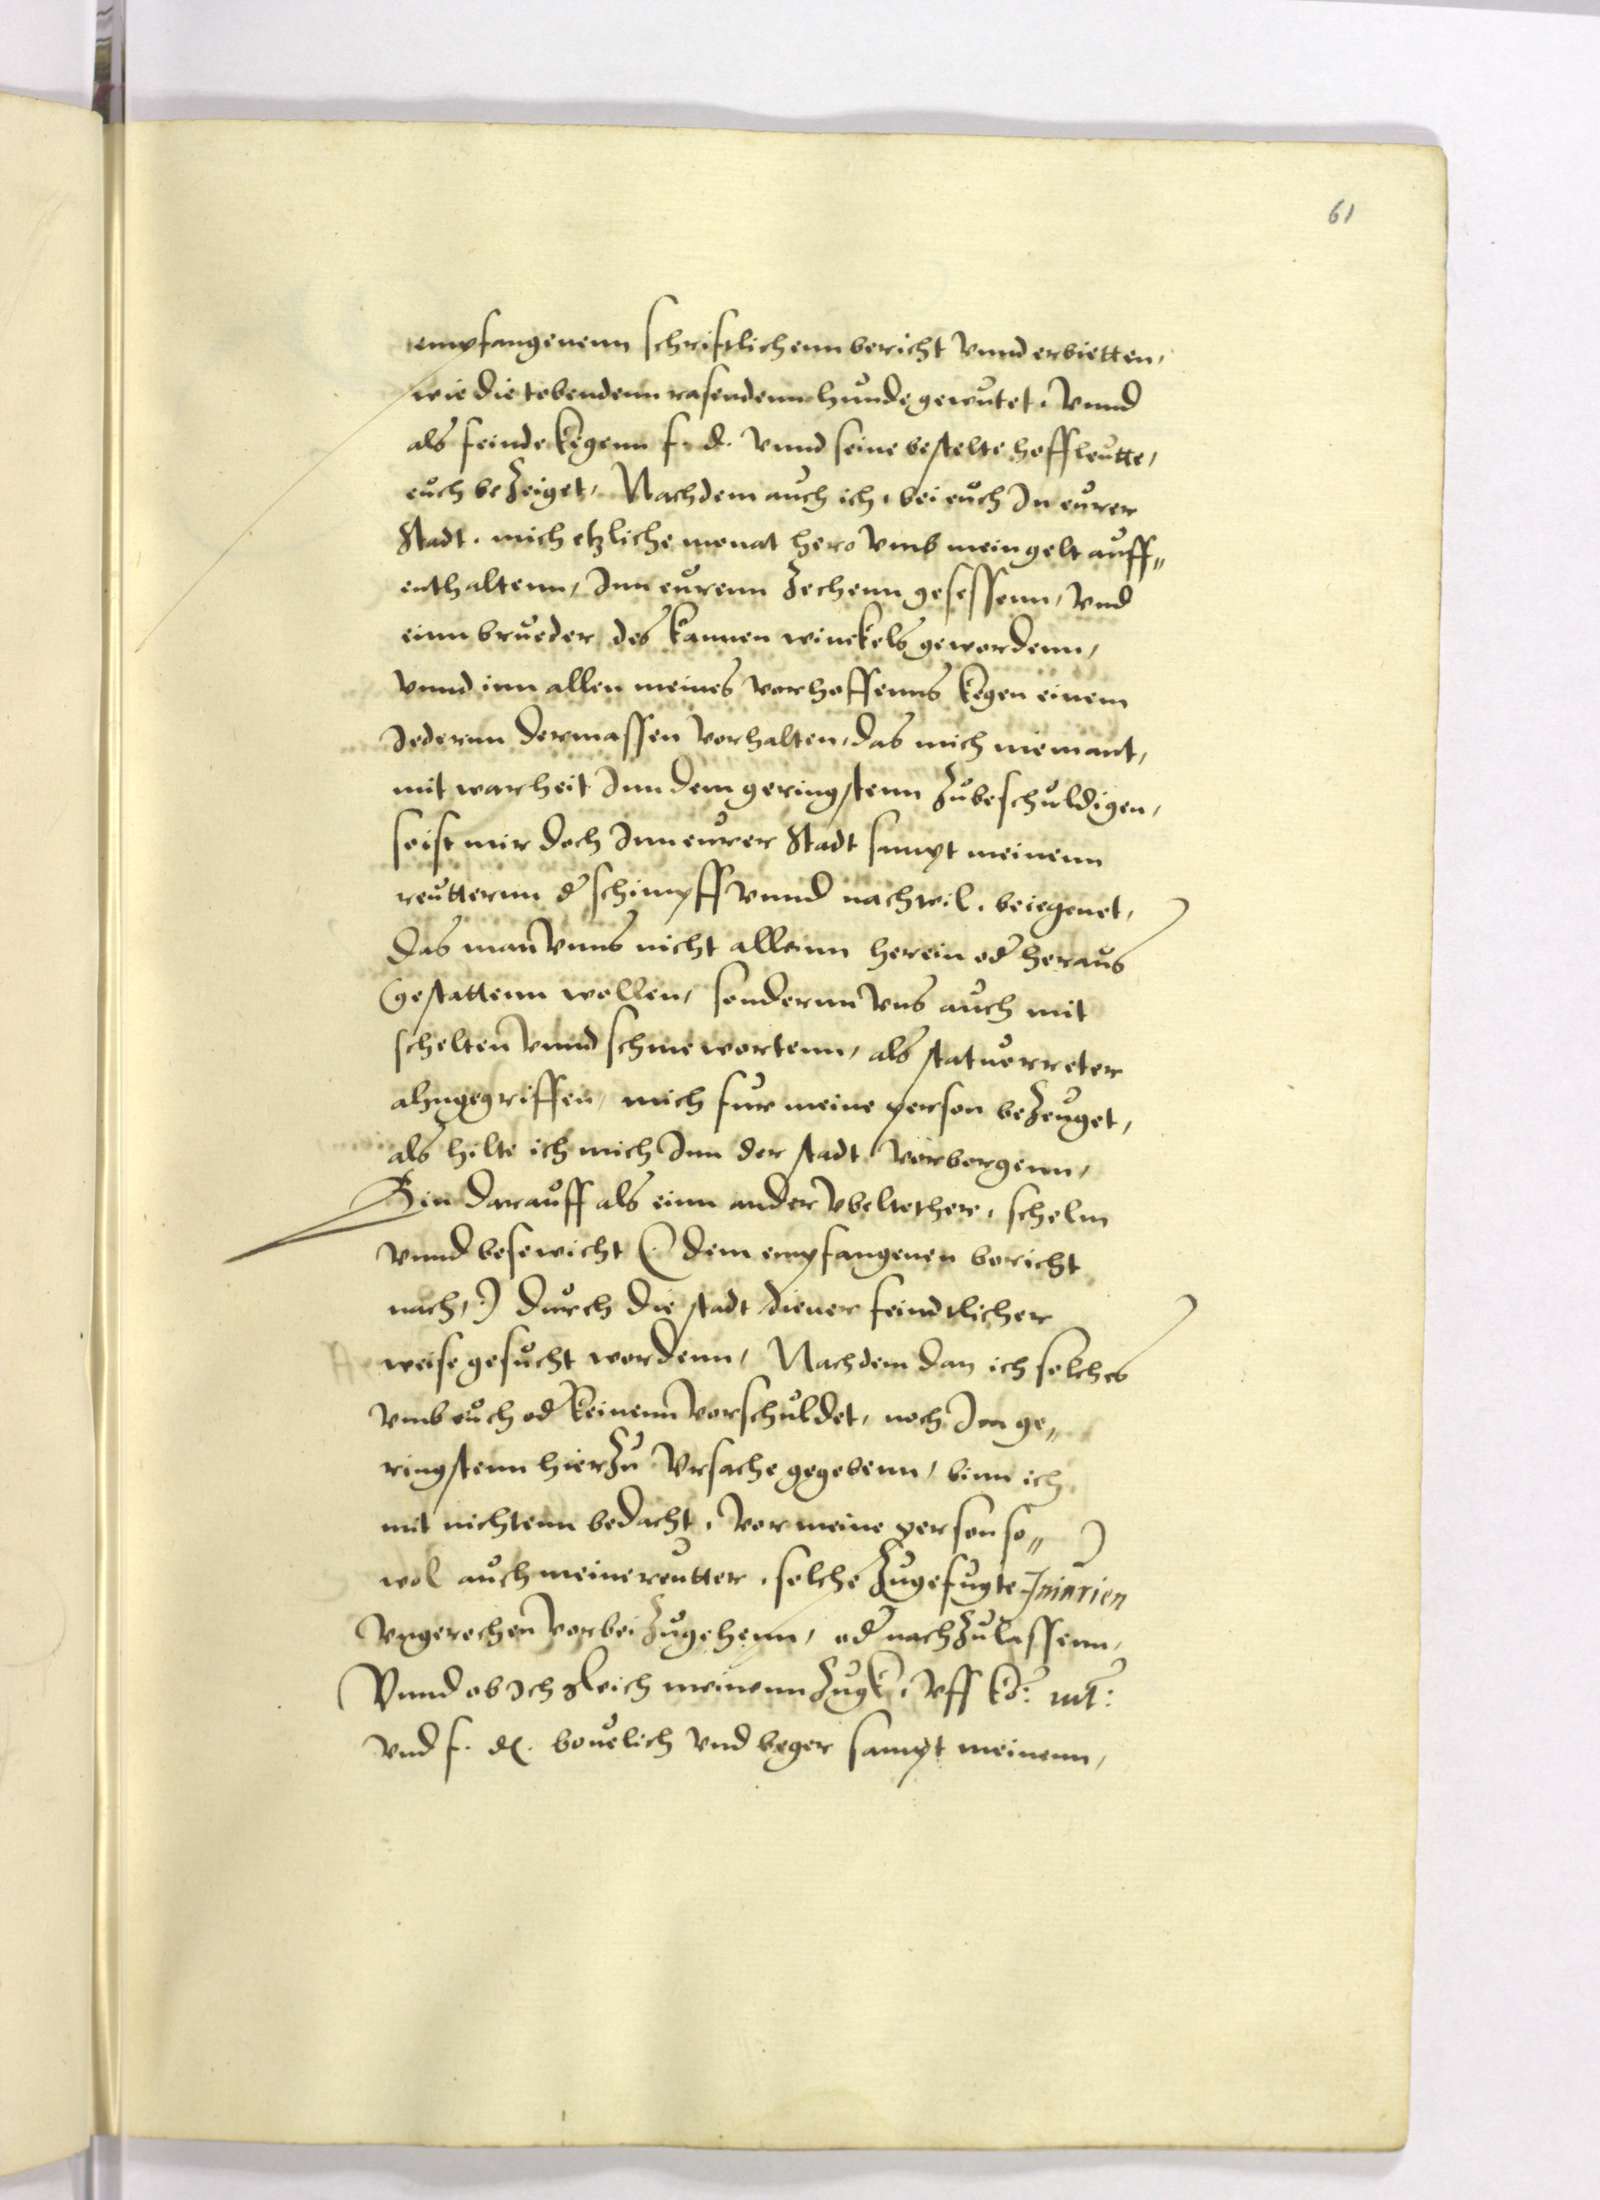 61
empfangenenn schriftlichenn bericht vnnd erbietten,
wie die tobendenn rasendenn hunde gewutet. vnnd
als feinde kegenn f. d. vnnd seine bestelte hoffleutte,
euch bezeiget, Nachdem auch ich, bei euch In eurer
Stadt. mich etzliche monat hero vmb mein gelt auff„
enthaltenn, Inn eurenn Zechenn gesessenn, vnd
einn brueder des kannen winckels gewordenn,
vnnd inn allen meines vorhoffenns kegen einem
Iedernn dermassen vorhalten, das mich niemant,
mit warheit Inn dem geringstenn zubeschuldigen,
so ist mir doch Inn eurer Stadt sampt meinenn
reutternn d schimpff vnnd nachteil. beiegenet,
das man vnns nicht allenn herein od heraus
gestattenn wollen, sondernn vns auch mit
schelten vnnd schmewortenn, als statuerreter
ahngegriffen, mich fur meine person bezeuget,
als hilte ich mich Inn der stadt vorborgenn,
Bin darauff als einn ander vbeltether, schelm
vnnd bosewicht (: dem empfangenen bericht
nach, :) durch die stadt diener feindtlicher
weise gesucht wordenn, Nachdem dan ich solches
vmb euch od keinenn vorschuldet, noch Im ge„
ringstenn hierzu vrsache gegebenn, binn ich
mit nichtenn bedacht, vor meine person so„
wol auch meine reutter, solche zugefugte Iniurien
vngerochen vorbei zugehenn, od nachzulassenn,
Vnnd ob Ich gleich meinenn Zugk, vff ko: mt:
vnd f. d. beuelich vnd beger sampt meinenn,